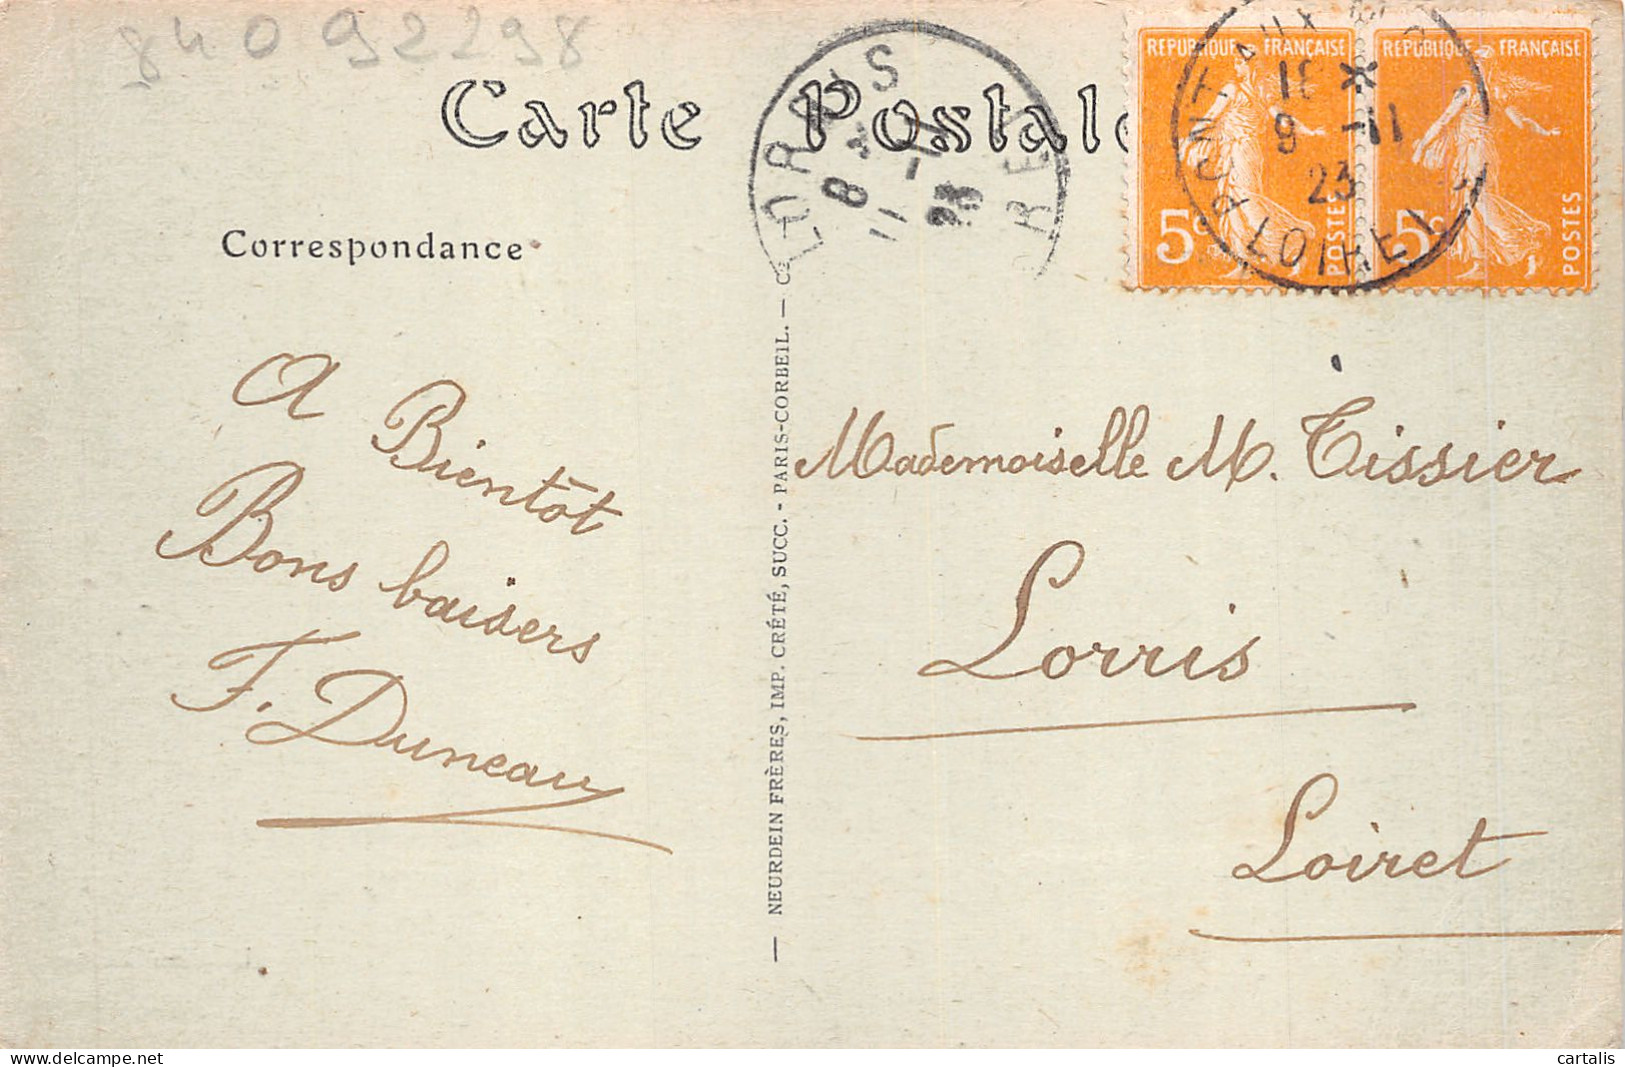 8409 2298
Carte Postale
Correspondance
A Bientôt
Bons baisers
F. Duneau
— NEURDEIN FRÈRES, IMP. CRÉTÉ, SUCC. - PARIS-CORBEIL. —
LORRIS
8
11 -11
23
RÉPUBLIQUE FRANÇAISE
5c
POSTES
RÉPUBLIQUE FRANÇAISE
5c
POSTES
PONT AUX
18 *
9 -11
23
LOIRET
Mademoiselle M. Tissier
Lorris
Loiret
cartalis
delcampe.net